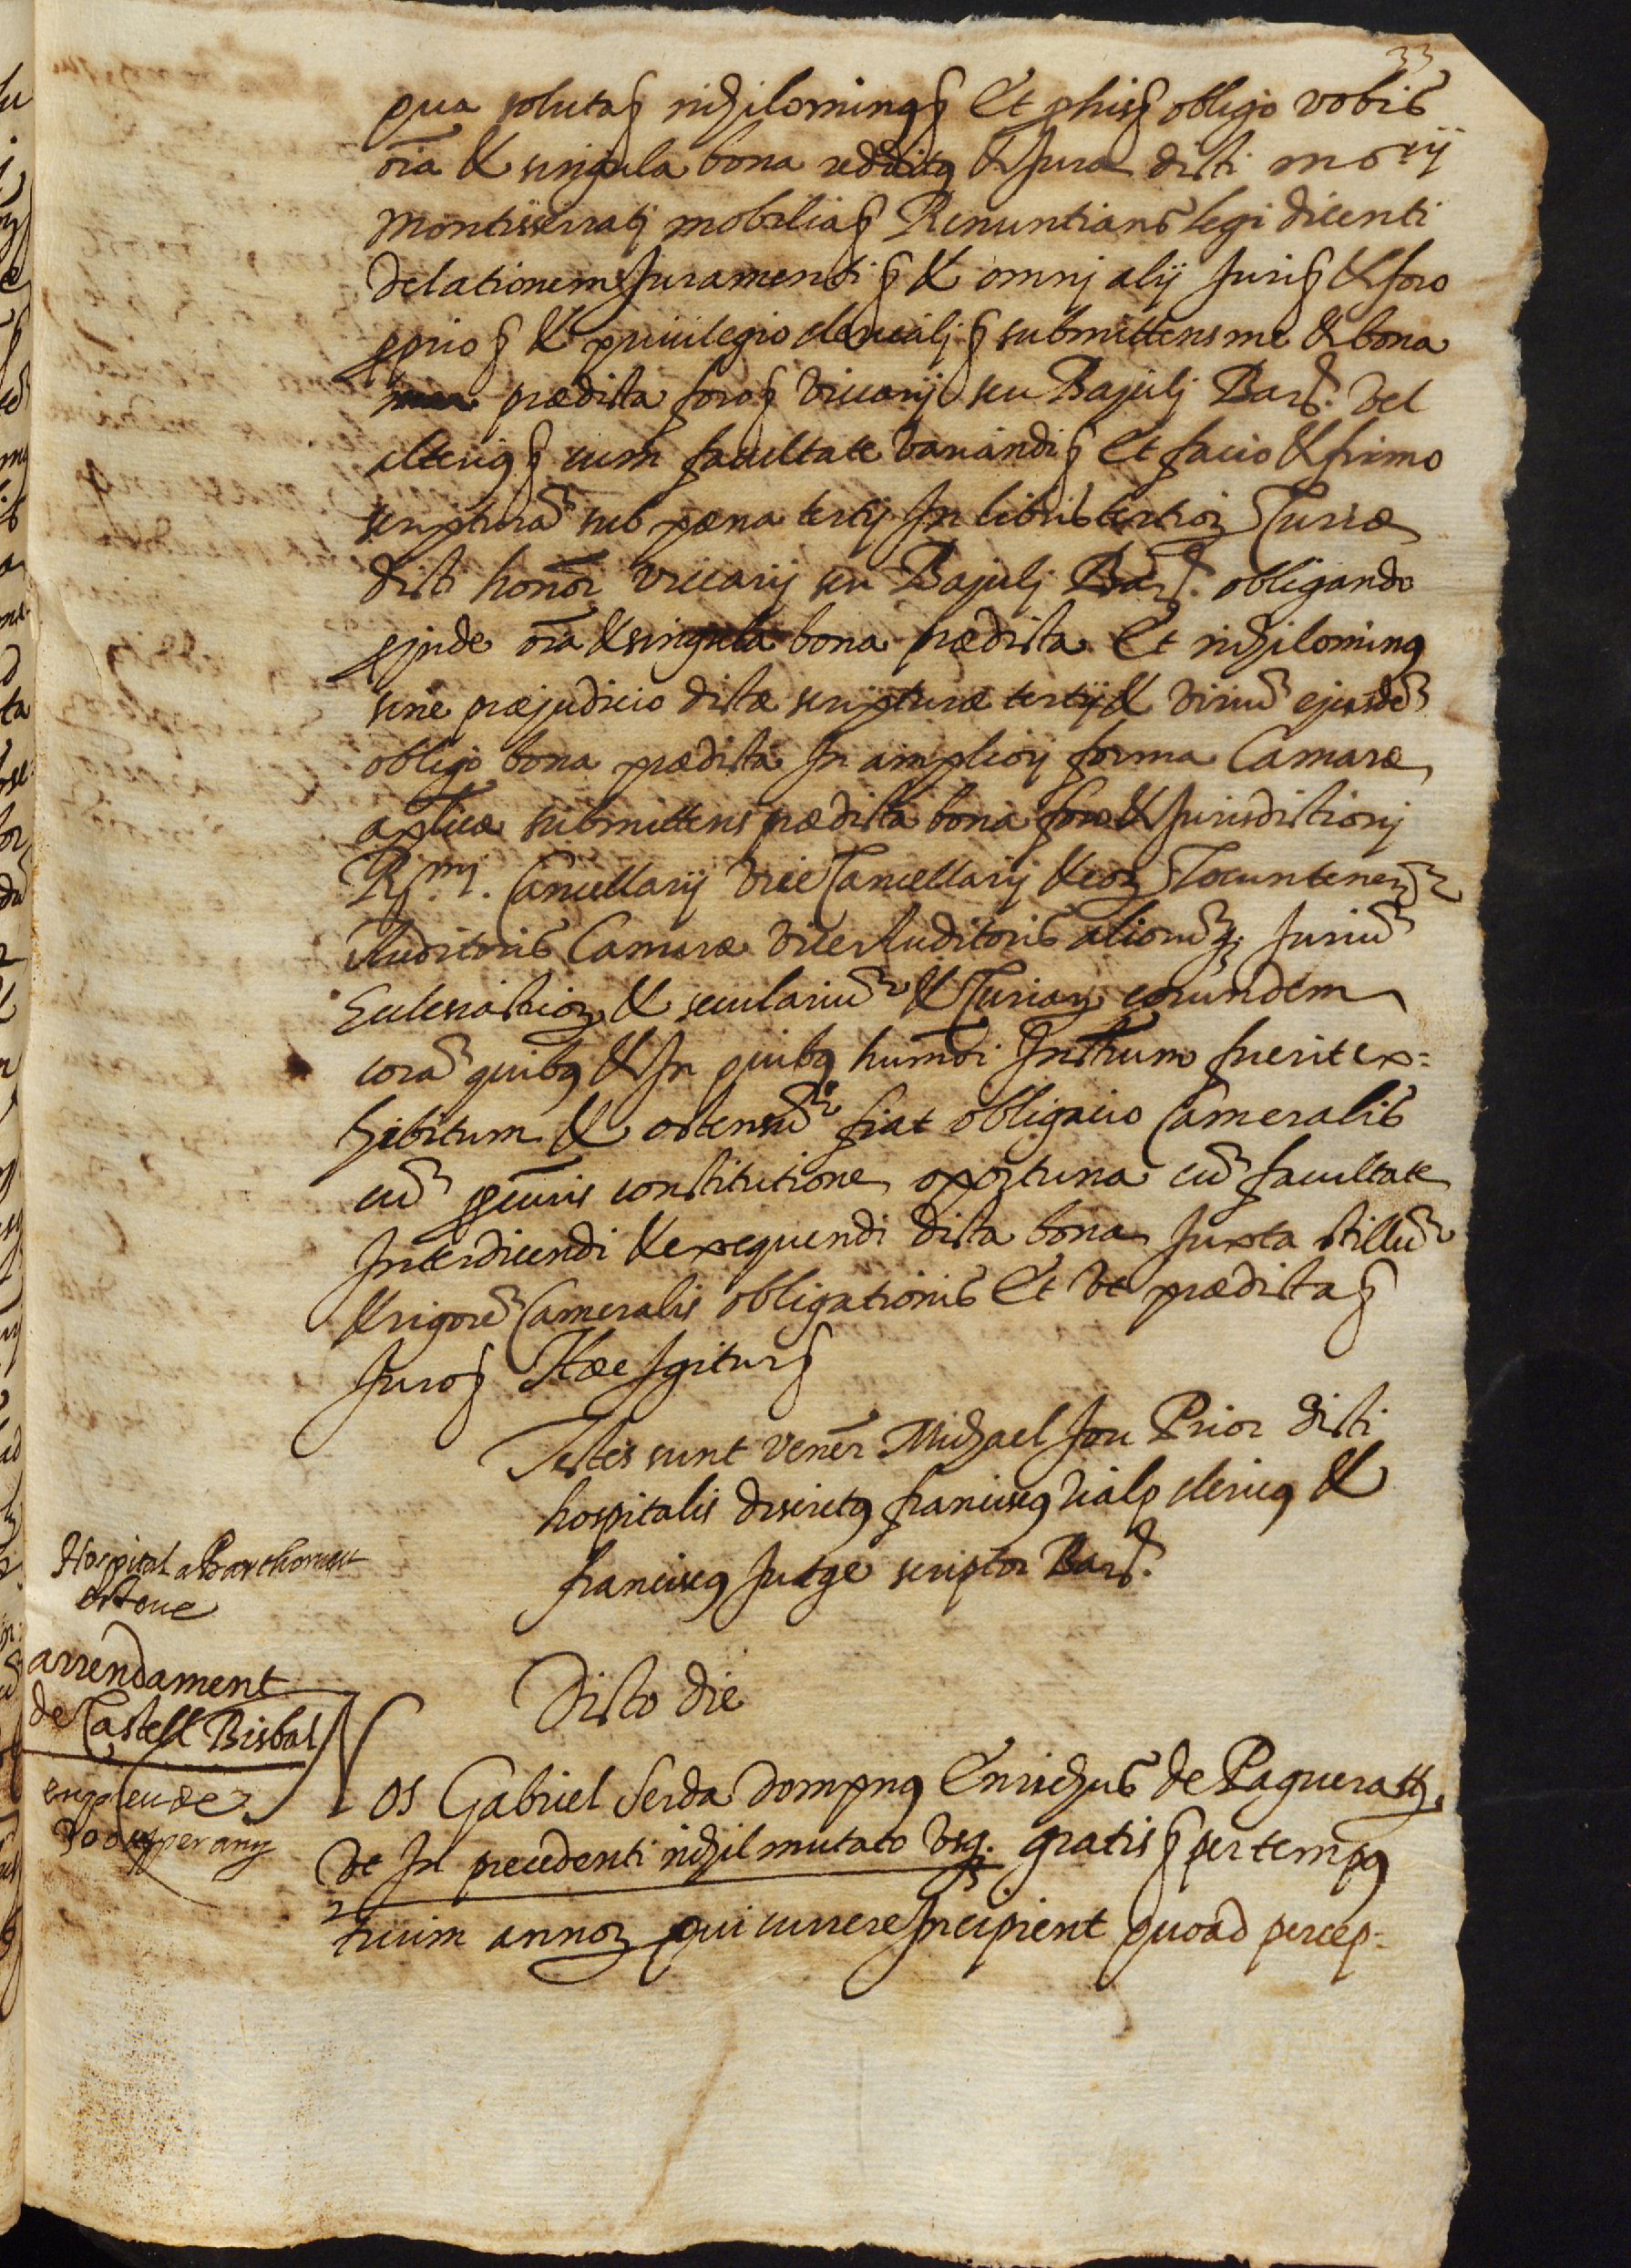 33
qua soluta § nihilominus § Et p his § obligo vobis
oīa & singula bona redditus & Jura dicti mō rij
Montisserrati mobilia § Renuntians legi dicenti
delationem Juramenti § & omnj alij Juri § & foro
pprio § & priuilegio clericalj § submittens me & bona
prædicta foro § vicarij seu Bajulj Barc̄. vel
alterius § cum facultate variandi § Et facio & firmo
scripturā sub pæna tertij In libris tertioꝝ Curiæ
dicti honor̄ vicarij seu Bajulj Barc̄. obligando
pinde oīa & singula bona prædicta Et nihilominus
sine præjudicio dictæ scripturæ tertij & viriū ejusdē
obligo bona prædicta In amplioj forma Cameræ
aplicæ submittens prædicta bona foro & Jurisdictionj
R̄.mj. Cancellarij vice Cancellarij & eoꝝ Locuntenen̄
Auditoris Cameræ vice Auditoris aliorūq; Juriū
Ecclesiasticoꝝ & seculariū & Curiaꝝ eorundem
corā quibus & In quibus humōi Instrum fuerit ex=
hibitum & ostensū fiat obligacio Cameralis
cū p̄curis constitutione oportuna cū facultate
Interdicendi & exequendi dicta bona Juxta stillū
& rigorē Cameralis obligationis Et de prædicta §
Juro § Hæc Igitur §
Testes sunt vener̄ Michael Jou Prior dicti
hospitalis discretus franciscus vialp clericus &
franciscus Jutge scriptor Barc̄.
Hospital a Barthomeu
estoue
arrendament
de Castell Bisbal
Dicto die
Nos Gabriel Serda Dompnus Enrichus de Paguera §
de In precedenti nihil mutato vsq. gratis § per tempus
trium annoꝝ qui currere Incipient quoad percep-